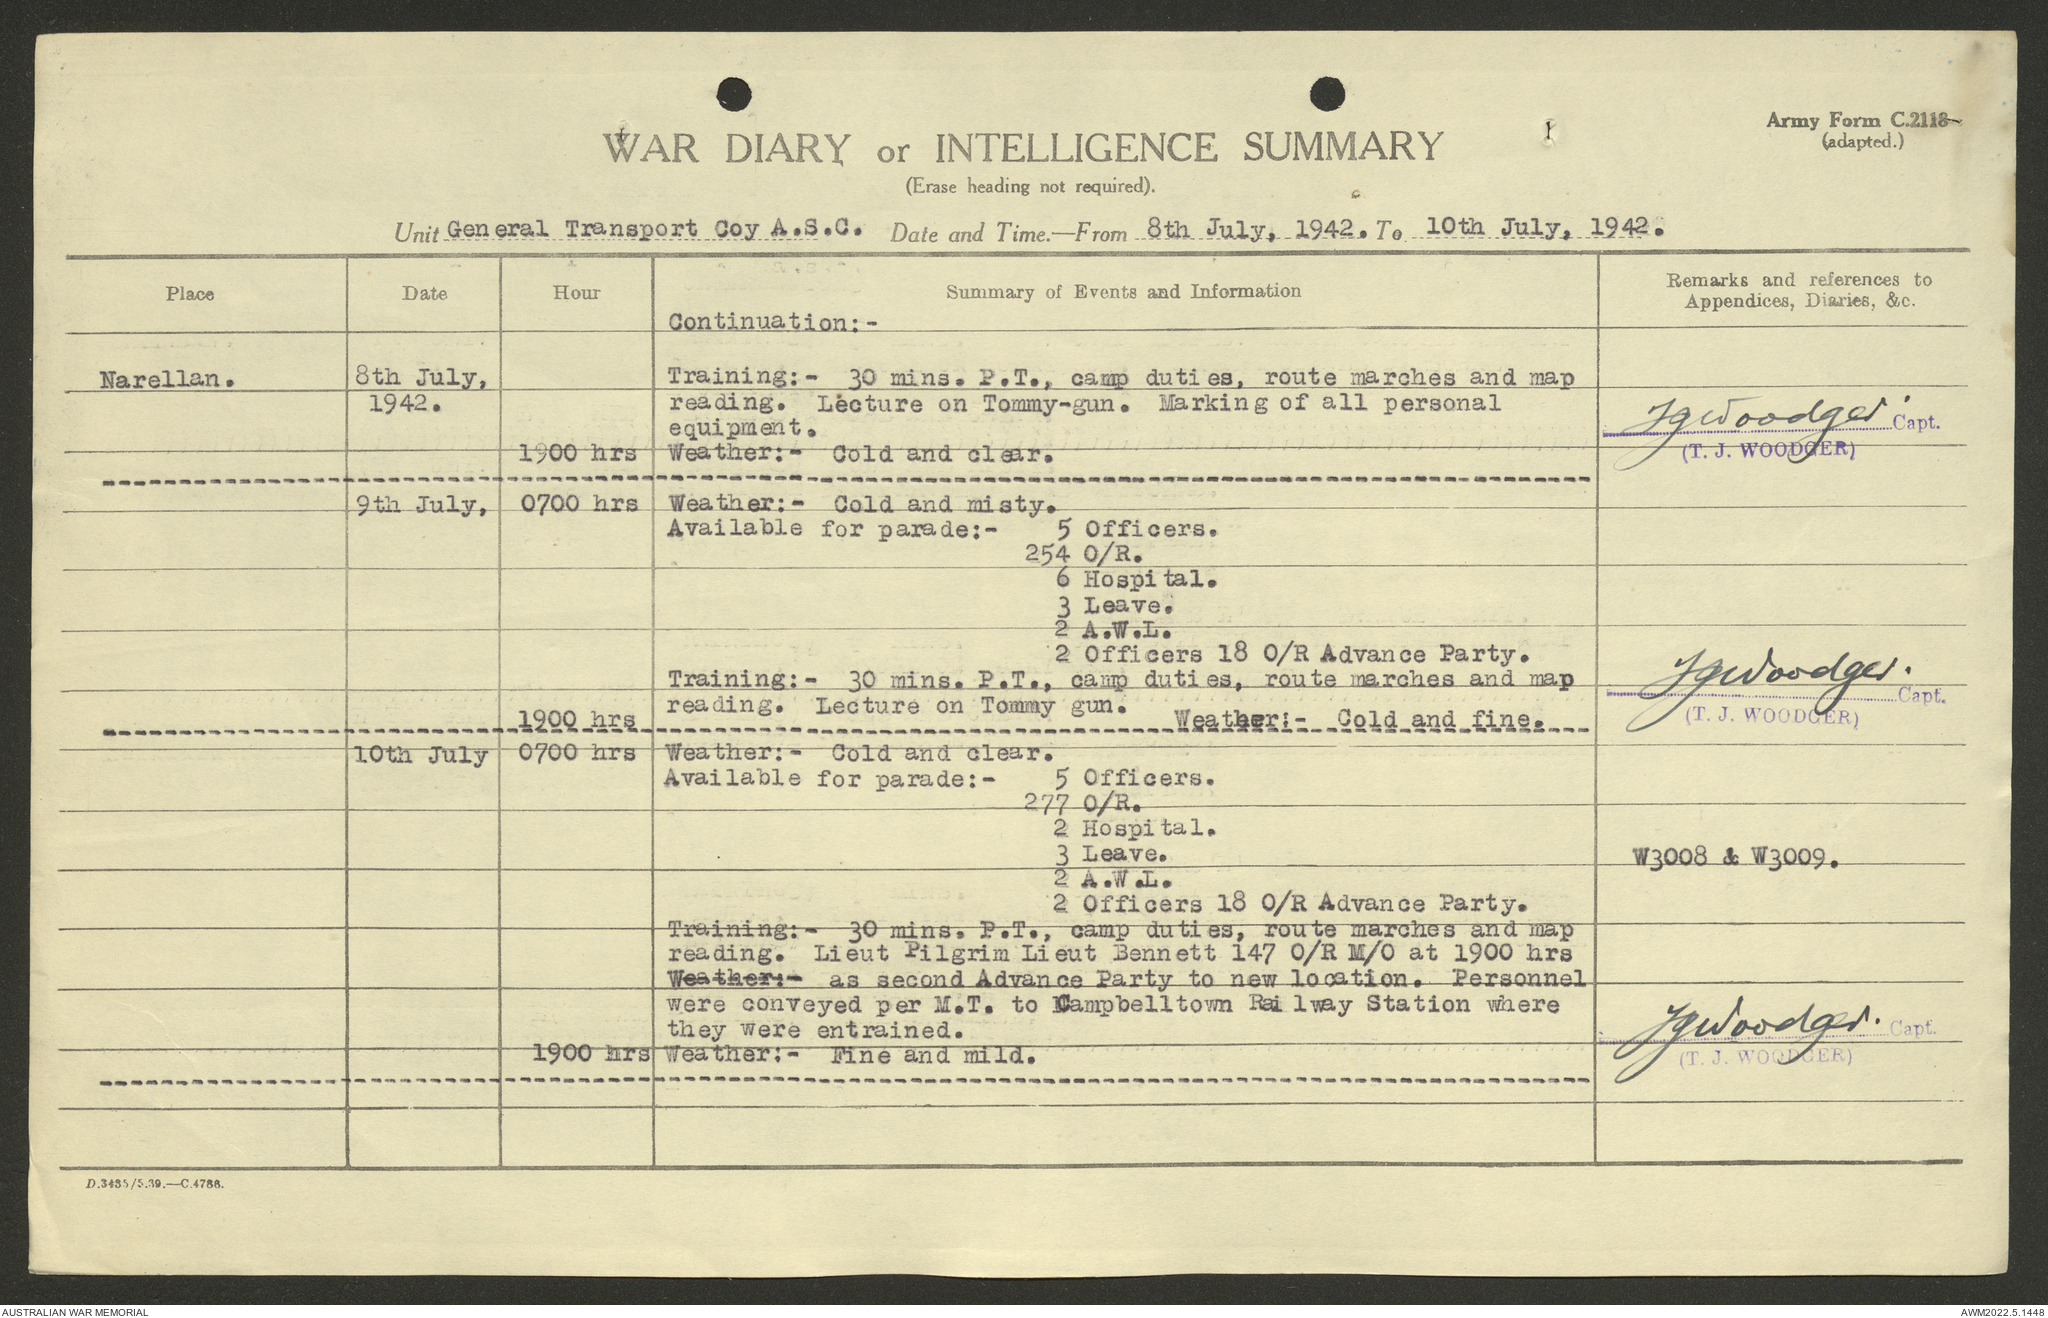 Army Form C.2118
(adapted.)
WAR DIARY or INTELLIGENCE SUMMARY
(Erase heading not required).
Unit General Transport Coy A.S.C. Date and Time.—From 8th July, 1942. To 10th July, 1942.
Place Date Hour Summary of Events and Information Remarks and references to
Appendices, Diaries, &c.
Continuation:-
Narellan. 8th July, Training:- 30 mins. P.T., camp duties, route marches and map
1942. reading. Lecture on Tommy-gun. Marking of all personal
equipment.
TJWoodger. Capt.
(T. J. WOODGER)
1900 hrs Weather:- Cold and clear.
9th July, 0700 hrs Weather:- Cold and misty.
Available for parade:- 5 Officers.
254 O/R.
6 Hospital.
3 Leave.
2 A.W.L.
2 Officers 18 O/R Advance Party.
Training:- 30 mins. P.T., camp duties, route marches and map
reading. Lecture on Tommy gun.
TJWoodger. Capt.
(T. J. WOODGER)
1900 hrs Weather:- Cold and fine.
10th July 0700 hrs Weather:- Cold and clear.
Available for parade:- 5 Officers.
277 O/R.
2 Hospital.
3 Leave. W3008 & W3009.
2 A.W.L.
2 Officers 18 O/R Advance Party.
Training:- 30 mins. P.T., camp duties, route marches and map
reading. Lieut Pilgrim Lieut Bennett 147 O/R M/O at 1900 hrs
Weather:- as second Advance Party to new location. Personnel
were conveyed per M.T. to Campbelltown Railway Station where
they were entrained.
TJWoodger. Capt.
(T. J. WOODGER)
1900 hrs Weather:- Fine and mild.
D.3435/5.39.—C.4788.
AUSTRALIAN WAR MEMORIAL AWM2022.5.1448